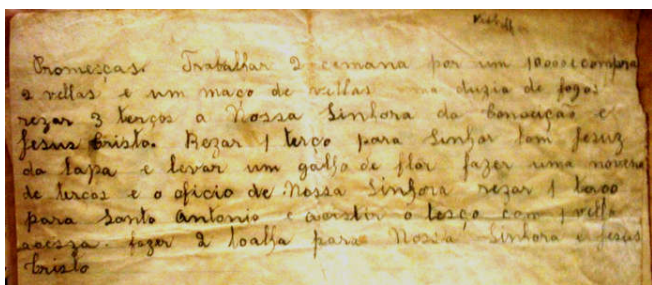 Promesças. Trabalhar 2 cemana por um 10000 e compra
2 vellas e um maço de vellas uma duzia de fogos
rezar 3 terços a Nossa Sinhora da Conceição e
Jesus Cristo. Rezar 1 terço para Sinhor bom Jesuz
da lapa e levar um galho de flor fazer uma novena
de terços e o oficio de Nossa Sinhora rezar 1 terço
para Santo Antonio e asistir o tesço com 1 vella
acesza. fazer 2 toalha para Nossa Sinhora e Jesus
Cristo